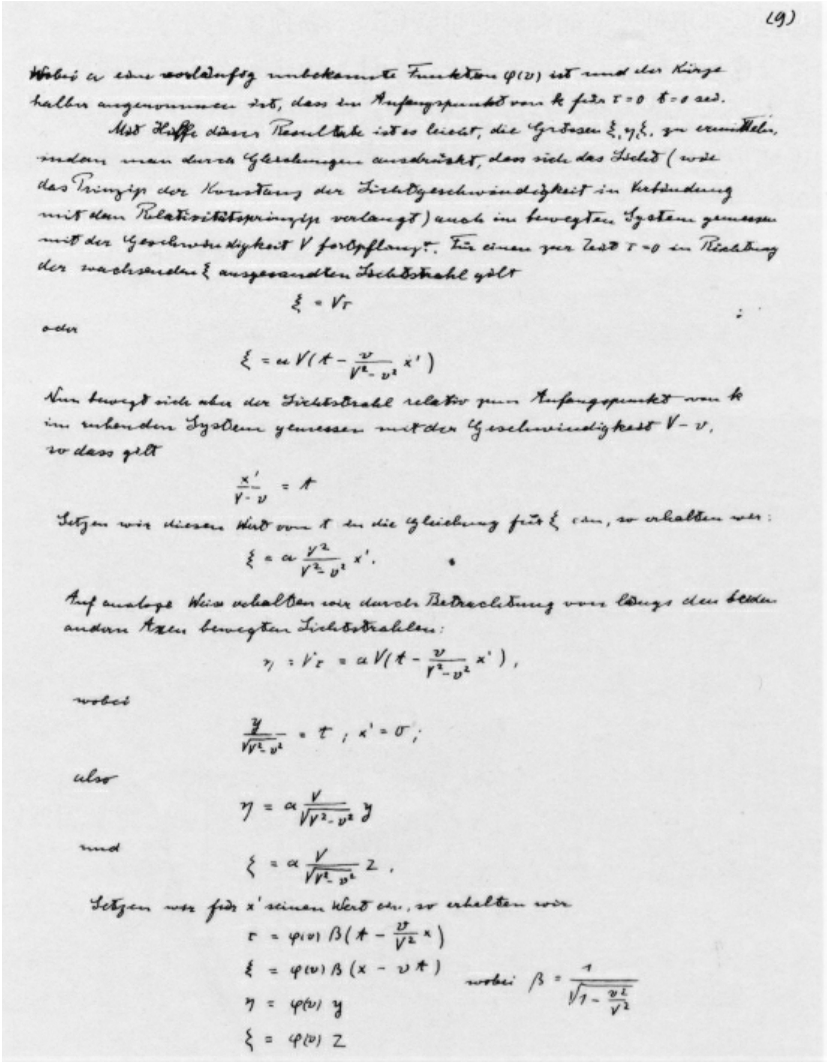 (9)
Wobei α eine vorläufig unbekannte Funktion φ(v) ist und der Kürze
halber angenommen ist, dass im Anfangspunkt von k für τ=0 t=0 sei.
Mit Hilfe dieses Resultates ist es leicht, die Grössen ξ, η, ζ, zu ermitteln,
indem man durch Gleichungen ausdrückt, dass sich das Licht (wie
das Prinzip der Konstanz der Lichtgeschwindigkeit in Verbindung
mit dem Relativitätsprinzip verlangt) auch im bewegten System gemessen
mit der Geschwindigkeit V fortpflanzt. Für einen zur Zeit τ=0 in Richtung
der wachsenden ξ ausgesandten Lichtstrahl gilt
ξ = Vτ
oder
ξ = α V(t − v/(V² − v²) x')
Nun bewegt sich aber der Lichtstrahl relativ zum Anfangspunkt von k
im ruhenden System gemessen mit der Geschwindigkeit V − v,
so dass gilt
x'/(V − v) = t
Setzen wir diesen Wert von t in die Gleichung für ξ ein, so erhalten wir:
ξ = α V²/(V² − v²) x'.
Auf analoge Weise erhalten wir durch Betrachtung von längs den beiden
andern Axen bewegten Lichtstrahlen:
η = Vτ = α V(t − v/(V² − v²) x'),
wobei
y/√(V² − v²) = t ; x' = 0;
also
η = α V/√(V² − v²) y
und
ζ = α V/√(V² − v²) z.
Setzen wir für x' seinen Wert ein, so erhalten wir
τ = φ(v) β(t − v/V² x)
ξ = φ(v) β(x − v t)
wobei β = 1/√(1 − v²/V²)
η = φ(v) y
ζ = φ(v) z